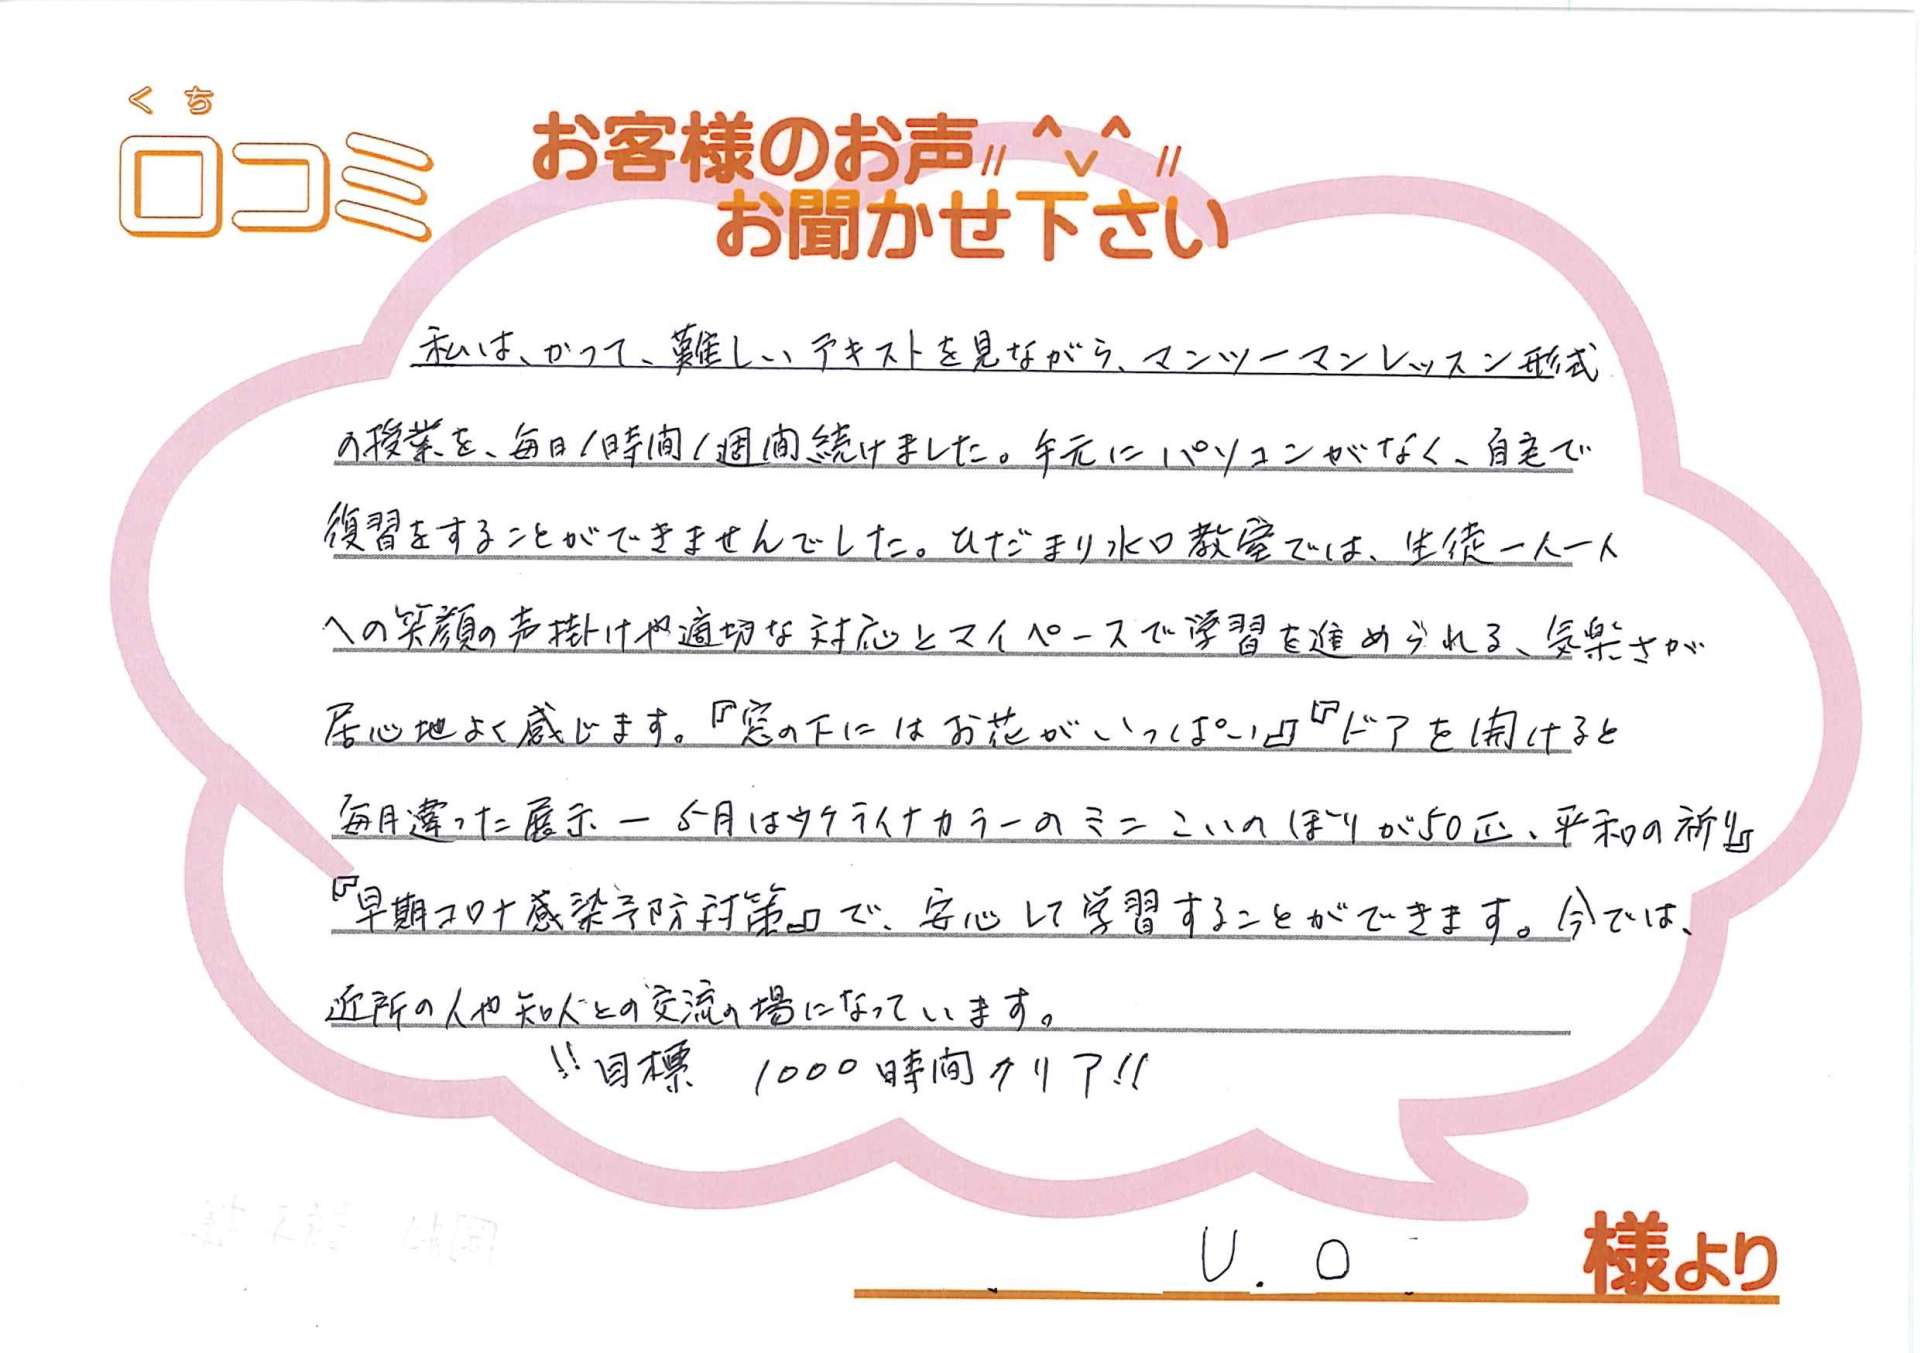 くち
口コミ
お客様のお声
お聞かせ下さい
私は、かつて、難しいテキストを見ながら、マンツーマンレッスン形式
の授業を、毎日1時間1週間続けました。手元にパソコンがなく、自宅で
復習をすることができませんでした。ひだまり水口教室では、生徒一人一人
への笑顔の声掛けや適切な対応とマイペースで学習を進められる、気楽さが
居心地よく感じます。『窓の下にはお花がいっぱい』『ドアを開けると
毎月違った展示ー5月はウクライナカラーのミニこいのぼりが50匹、平和の祈り』
『早期コロナ感染予防対策』で、安心して学習することができます。今では、
近所の人や知人との交流の場になっています。
!!目標 1000時間クリア!!
U.O
様より